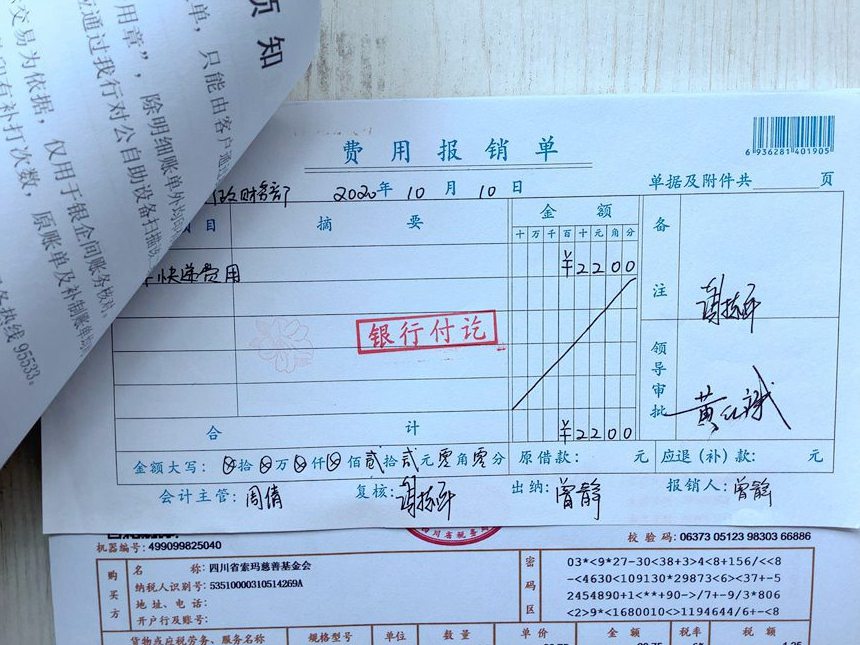 须知
用章”，除明细账单外均
单，只能由客户通
交易为依据，仅用于银企间账务核对，
应通过我行对公自助设备扫描
有补打次数，原账单及补制账单均
务热线 95533。
费用报销单
6936281401905
财务部 2020年 10 月 10 日 单据及附件共 页
项目 摘要 金额 备注
十 万 千 百 十 元 角 分
快递费用 ¥2200
银行付讫
领导审批
合计 ¥2200
金额大写： 拾 万 仟 佰 贰拾贰元零角零分 原借款： 元 应退（补）款： 元
会计主管：周倩 复核： 出纳：曾静 报销人：曾静
四川省税务
机器编号：499099825040 校验码：06373 05123 98303 66886
购买方
名称：四川省索玛慈善基金会
纳税人识别号：53510000310514269A
地址、电话：
开户行及账号：
密码区
03*<9*27-30<38+3>4<8+156/<<8
-<4630<109130*29873<6><37+-5
2454890+1<**+90->/7+-9/3*806
<2>9*<1680010<>1194644/6+-<8
货物或应税劳务、服务名称 规格型号 单位 数量 单价 金额 税率 税额